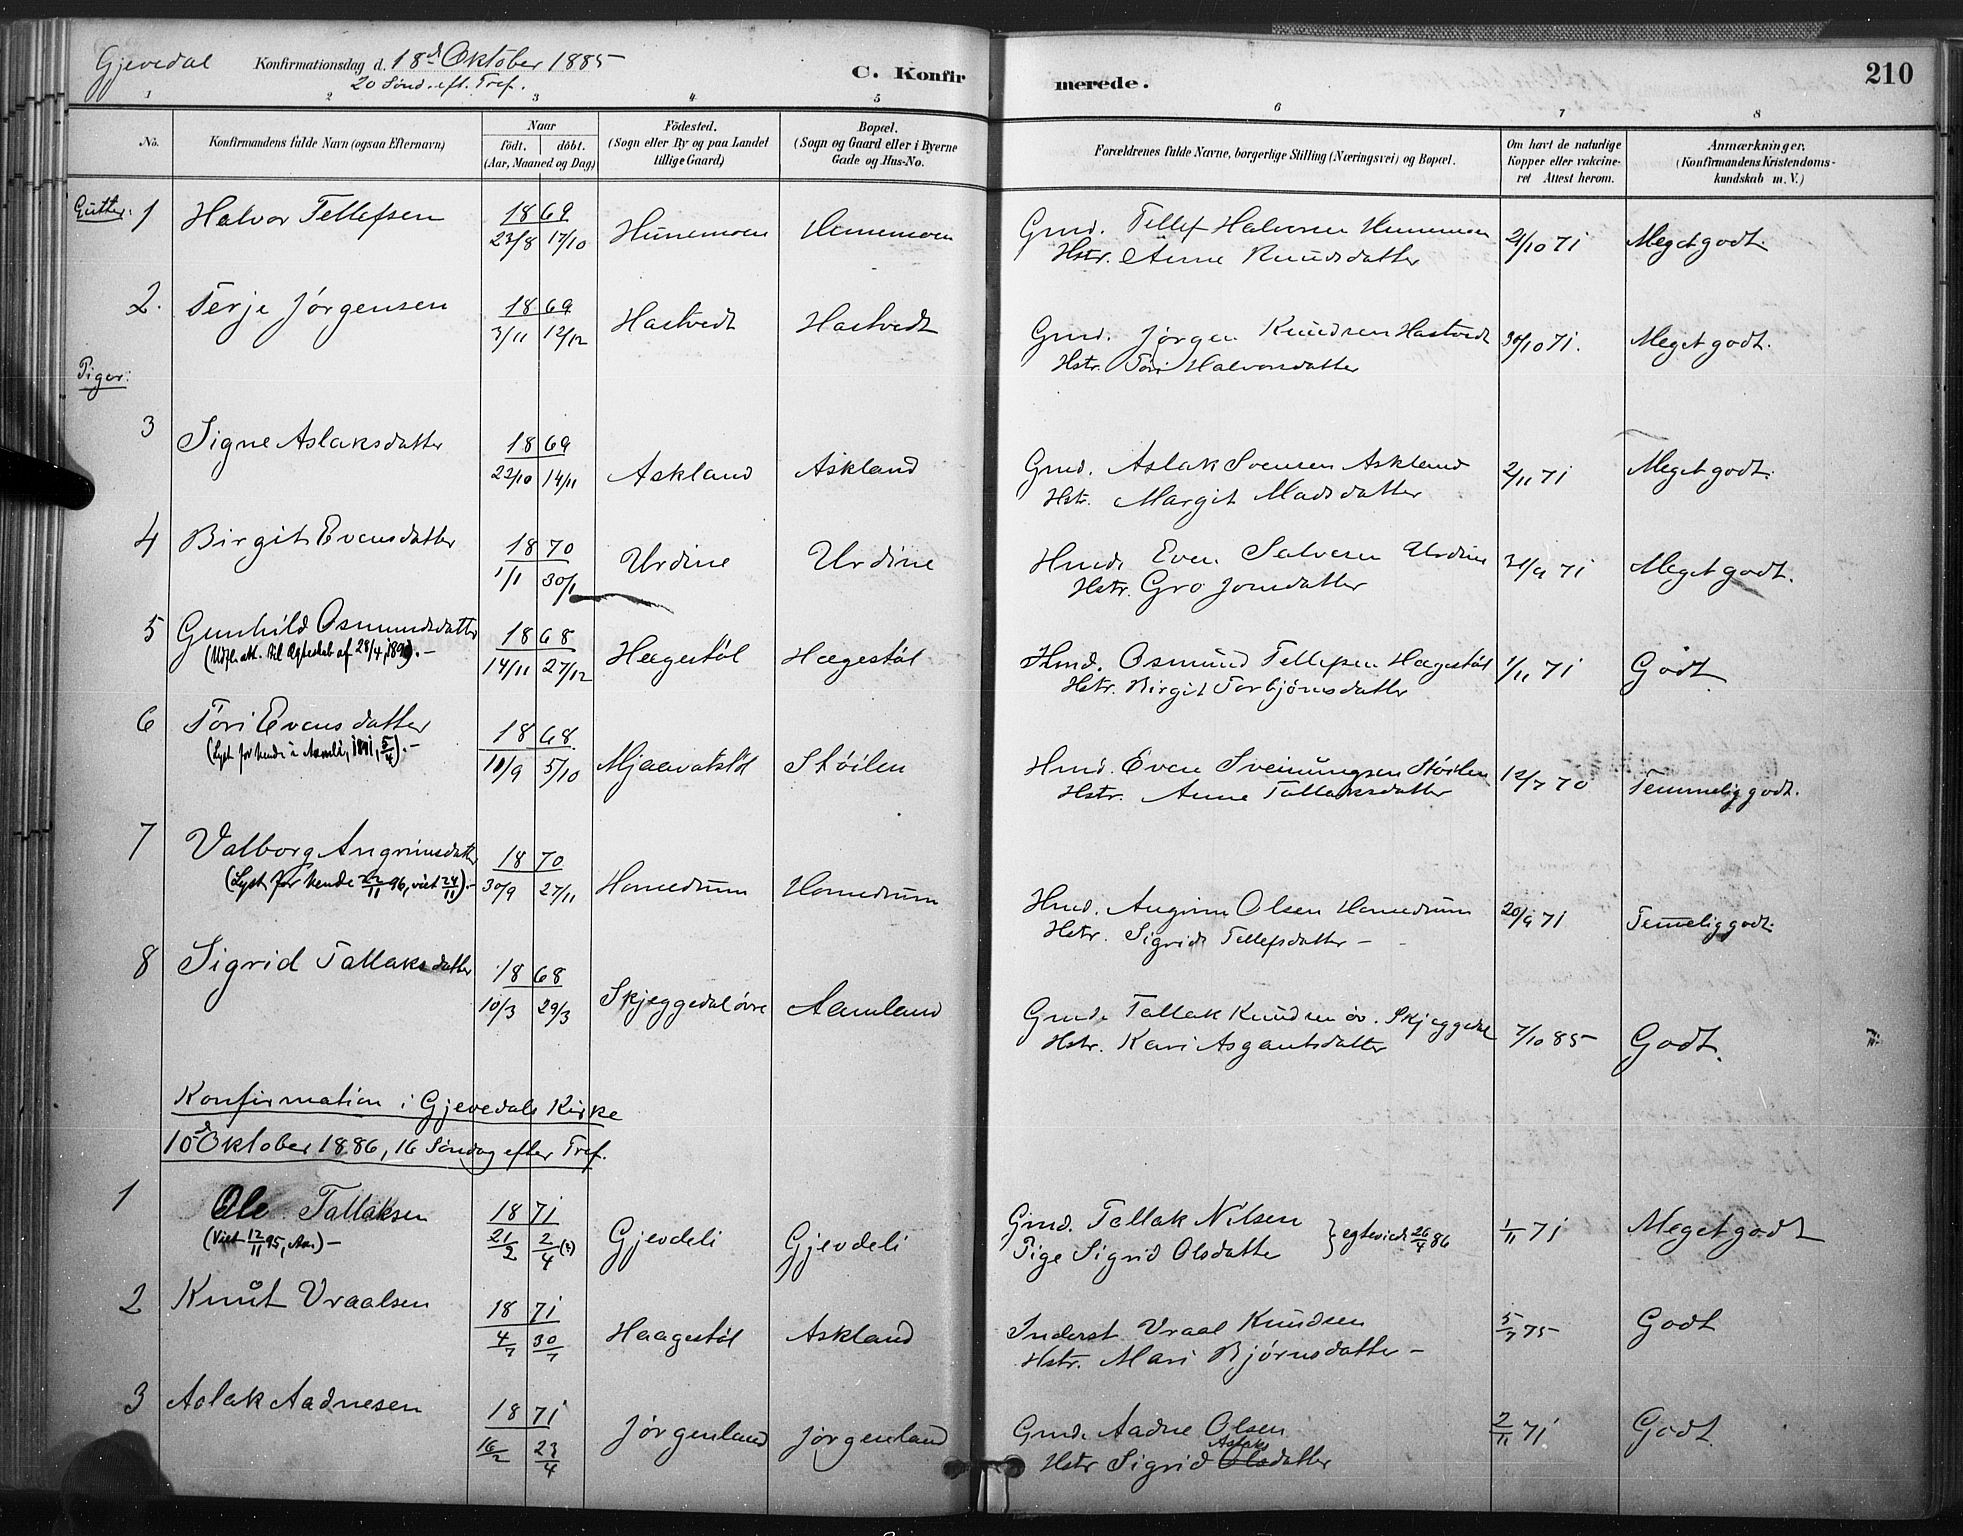 Gjevedal Konfirmationsdag d. 18d Oktober 1885
20 Sønd. eft. Tref.
C. Konfirmerede.
210
1 2 3 4 5 6 7 8
No.
Konfirmandens fulde Navn (ogsaa Efternavn)
Naar
födt. döbt.
(Aar, Maaned og Dag)
Födested.
(Sogn eller By og paa Landet
tillige Gaard)
Bopæl.
(Sogn og Gaard eller i Byerne
Gade og Hus-No.
Forældrenes fulde Navne, borgerlige Stilling (Næringsvei) og Bopæl.
Om havt de naturlige
Kopper eller vakcine-
ret Attest herom.
Anmærkninger.
(Konfirmandens Kristendoms-
kundskab m. V.)
Gutter:
1 Halvor Tellefsen 1869 23/8 17/10 Hunemoen Hunemoen
Gmd. Tellef Halvorsen Hunemoen
Hstr. Anne Knudsdatter
2/10 71 Meget godt.
2. Terje Jørgensen 1869 3/11 12/12 Hastvedt Hastvedt
Gmd. Jørgen Knudsen Hastvedt
Hstr. Tori Halvorsdatter
30/10 71. Meget godt.
Piger:
3 Signe Aslaksdatter 1869 22/10 14/11 Askland Askland
Gmd. Aslak Svensen Askland
Hstr. Margit Madsdatter
2/11 71 Meget godt.
4 Birgit Evensdatter 1870 1/1 30/1 Urdine Urdine
Hmd. Even Salvesen Urdine
Hstr. Gro Jonsdatter
31/9 71 Meget godt.
5 Gunhild Osmundsdatter 1868 14/11 27/12 Hægestøl Hægestøl
(Udst. att. til Ægteskab af 28/4,
Hmd. Osmund Tellefsen Hægestøl
Hstr. Birgit Torbjønsdatter
1/11 71 Godt
6 Tori Evensdatter 1868 11/9 5/10 Mjaavatstøl Støilen
(Lyst for hende i Aamli, 1891, 5/4).-
Hmd. Even Sveinungsen Støilen
Hstr. Anne Tallaksdatter
12/7 70 Temmelig godt.
7 Valborg Angrimsdatter 1870 30/9 27/11 Homdrum Homdrum
(Lyst for hende 22/11 96, viet 24/11).-
Hmd. Angrim Olsen Homdrum
Hstr. Sigrid Tellefsdatter -
20/9 71 Temelig godt.
8 Sigrid Tallaksdatter 1868 10/3 29/3 Skjeggedal øvre Aamland
Gmd. Tallak Knudsen øv. Skjeggedal
Hstr. Kari Asgautsdatter
7/10 85 Godt.
Konfirmation i Gjevedals Kirke
10d Oktober 1886, 16 Søndag efter Tref.
1 Ole Tallaksen 1871 21/2 2/4 (?) Gjevdeli Gjevdeli
(Viet 12/11 95, Aa.)-
Gmd. Tallak Nilsen
Pige Sigrid Olsdatter } egteviet 26/4 86
1/11 71 Meget godt
2 Knut Vraalsen 1871 4/7 30/7 Haagestøl Askland
Inderst Vraal Knudsen
Hstr. Mari Bjørnsdatter -
5/7 75 Godt
3 Aslak Aadnesen 1871 16/2 23/4 Jørgenland Jørgenland
Gmd. Aadne Olsen
Hstr Sigrid Aslaksdatter
2/11 71 Godt